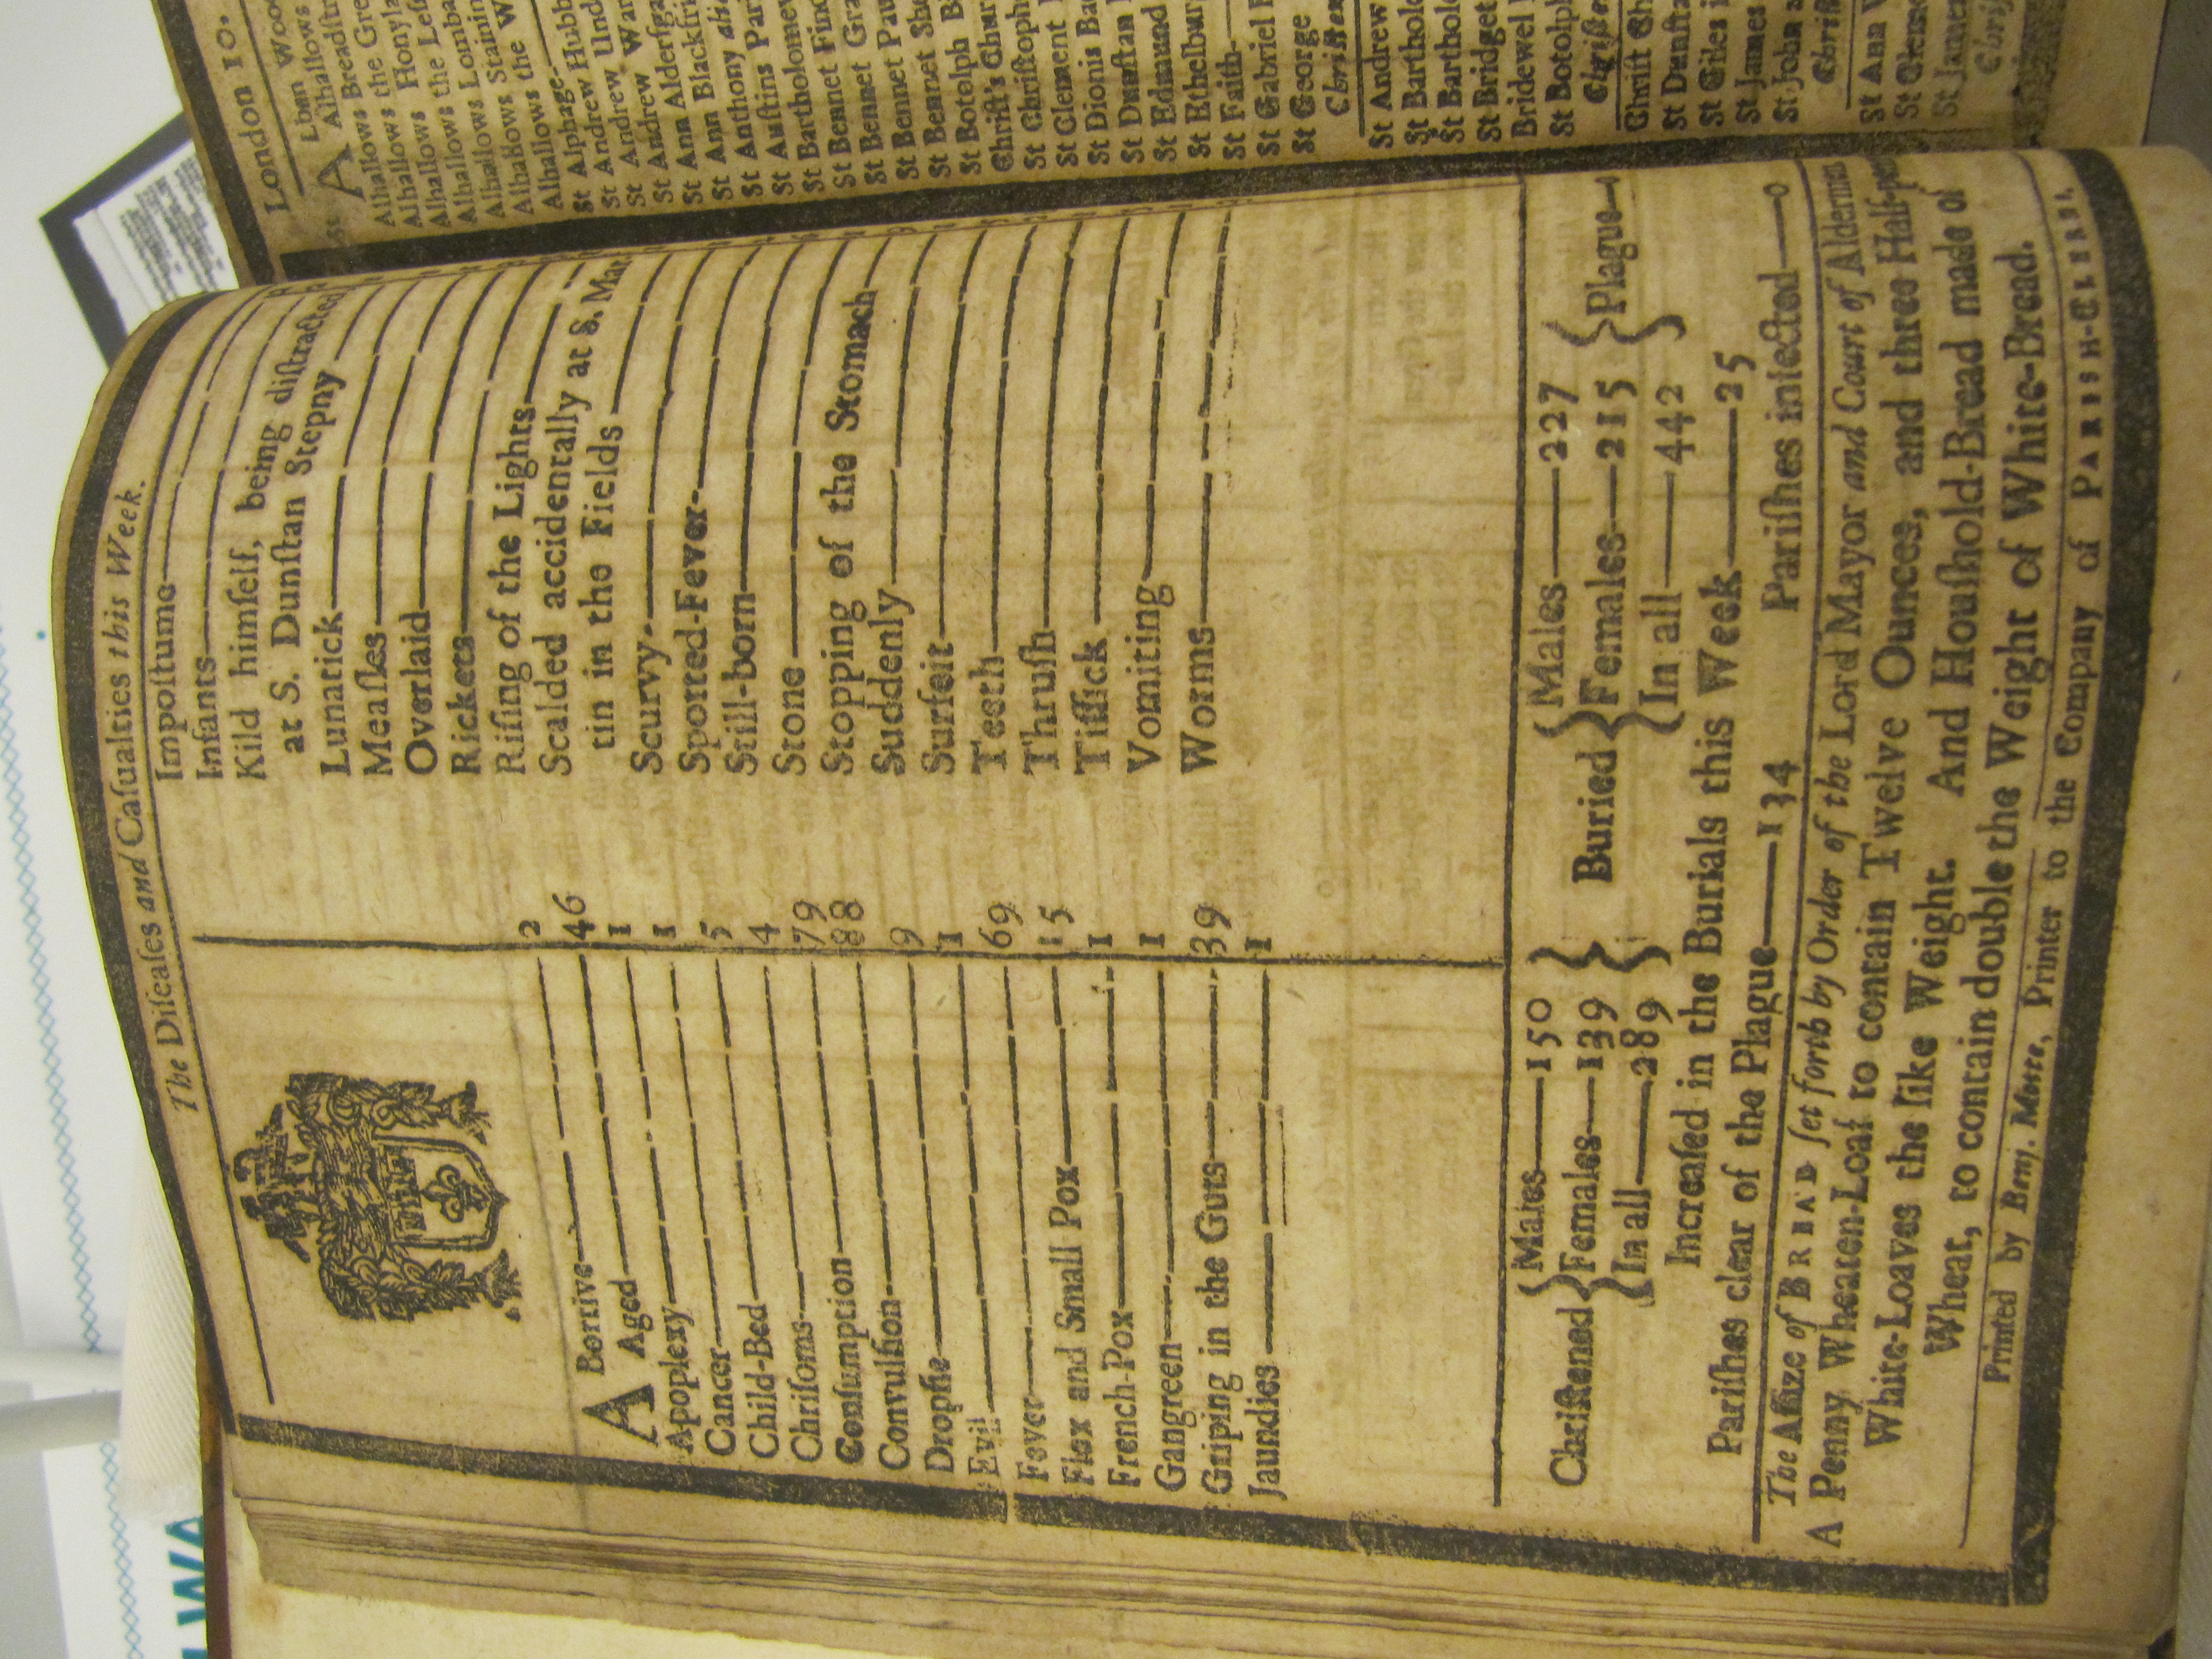 The Diſeaſes and Caſualties this Week.
ABortive— 2
Aged— 46
Apoplexy— 1
Cancer— 1
Child-Bed— 5
Chriſoms— 4
Conſumption— 79
Convulſion— 88
Dropſie— 9
Evil— 1
Fever— 69
Flox and Small Pox— 15
French-Pox— 1
Gangreen— 1
Griping in the Guts— 39
Jaundies— 1
Impoſtume—
Infants—
Kild himſelf, being diſtracted
at S. Dunſtan Stepny—
Lunatick—
Meaſles—
Overlaid—
Rickets—
Riſing of the Lights—
Scalded accidentally at S. Mar
tin in the Fields—
Scurvy—
Spotted-Fever—
Still-born—
Stone—
Stopping of the Stomach—
Suddenly—
Surfeit—
Teeth—
Thruſh—
Tiſſick—
Vomiting—
Worms—
Chriſtened { Males—150 Females—139 In all—289 } Buried { Males—227 Females—215 In all—442 } Plague—
Increaſed in the Burials this Week—25
Pariſhes clear of the Plague—134 Pariſhes infected—0
The Aſſize of BREAD ſet forth by Order of the Lord Mayor and Court of Aldermen
A Penny Wheaten-Loaf to contain Twelve Ounces, and three Half-pen
White-Loaves the like Weight. And Houſhold-Bread made of
Wheat, to contain double the Weight of White-Bread.
Printed by Benj. Motte, Printer to the Company of PARISH-CLERKS.
London 10.
St ALban Woo
Alhallows
Alhallows Breadſtr
Alhallows the Gre
Alhallows Honyla
Alhallows the Leſ
Alhallows Lomba
Alhallows Stainin
Alhallows the W
St Alphage—
St Andrew Hubb
St Andrew Und
St Andrew War
St Ann Alderſga
St Ann Blackfri
St Anthony
St Auſtins Par
St Bartholomew
St Bennet Finc
St Bennet Gra
St Bennet Pau
St Bennet She
St Botolph Bi
Chriſt's Chur
St Chriſtoph
St Clement
St Dionis Ba
St Dunſtan
St Edmund
St Ethelbur
St Faith—
St Gabriel
St George
St Andrew
St Barthol
St Barthol
St Bridget
Bridewel
St Botolph
Chriſt Ch
St Dunſta
St Giles i
St James
St John
St Ann
St Cleme
St James